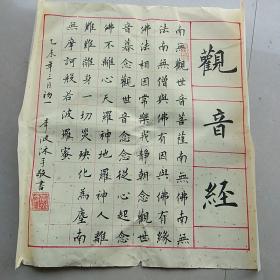 觀音經
南無觀世音菩薩南無佛南無
法南無僧與佛有因與佛有緣
佛法相因常樂我静朝念觀世
音暮念觀世音念念從心起念
佛不離心天羅神地羅神人離
難難離身一切災殃化為塵南
無摩訶般若波羅蜜
乙未年三月初一 李波沐手敬書